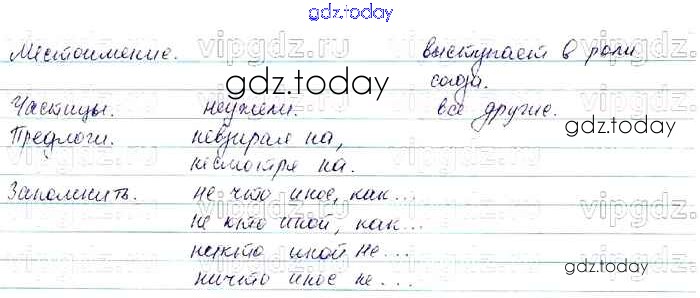 gdz.today
Местоимение. выступает в роли
союза.
gdz.today
Частицы. неужели. все другие.
gdz.today
Предлоги. невзирая на,
несмотря на.
Запомнить. не что иное, как...
не кто иной, как...
никто иной не...
ничто иное не...
gdz.today
vipgdz.ru